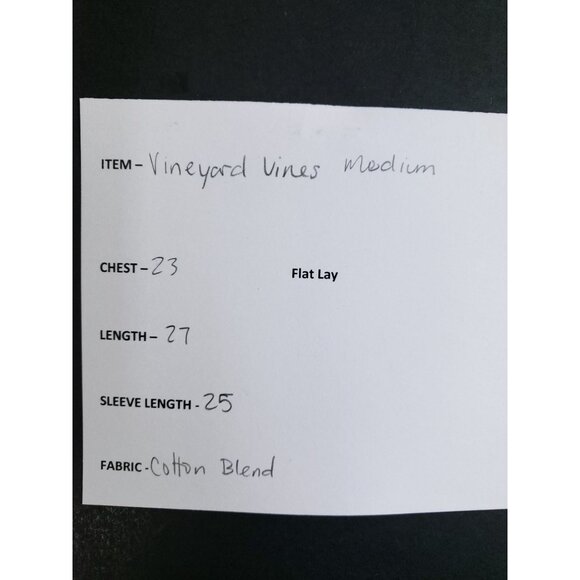 ITEM – Vineyard Vines Medium
CHEST – 23 Flat Lay
LENGTH – 27
SLEEVE LENGTH - 25
FABRIC - Cotton Blend